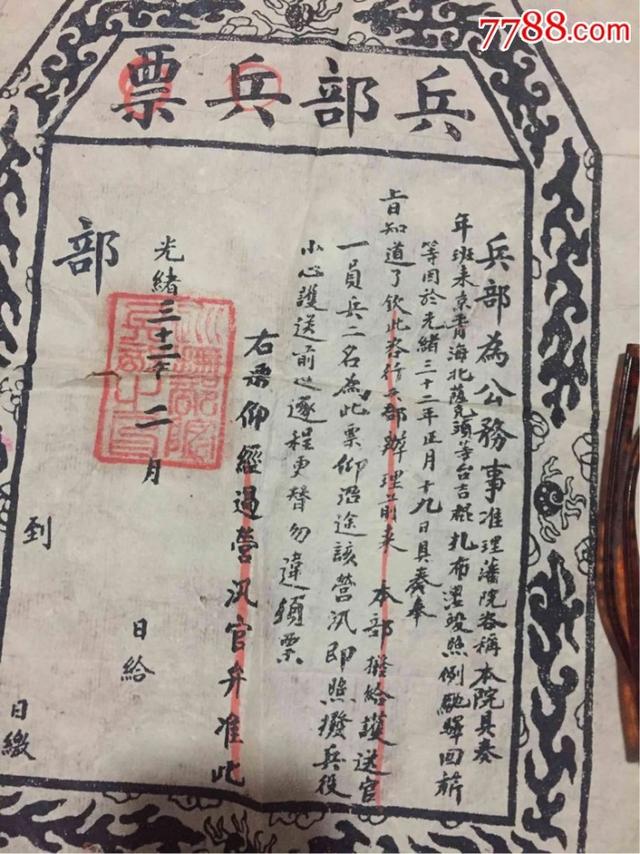 7788.com
兵部兵票
兵部為公務事准理藩院咨稱本院具奏
年班来京青海北落克頭等台吉棍扎布差竣照例馳驛回
等因於光緒三十二年正月十九日具奏奉
旨知道了欽此咨行兵部辦理前来本部撥給護送官
一員兵二名為此票仰沿途該營汛即照撥兵役
小心護送前進逐程更替勿違須票
右票仰經過營汛官弁准此
光緒三十二年二月 日給
部
到 日繳